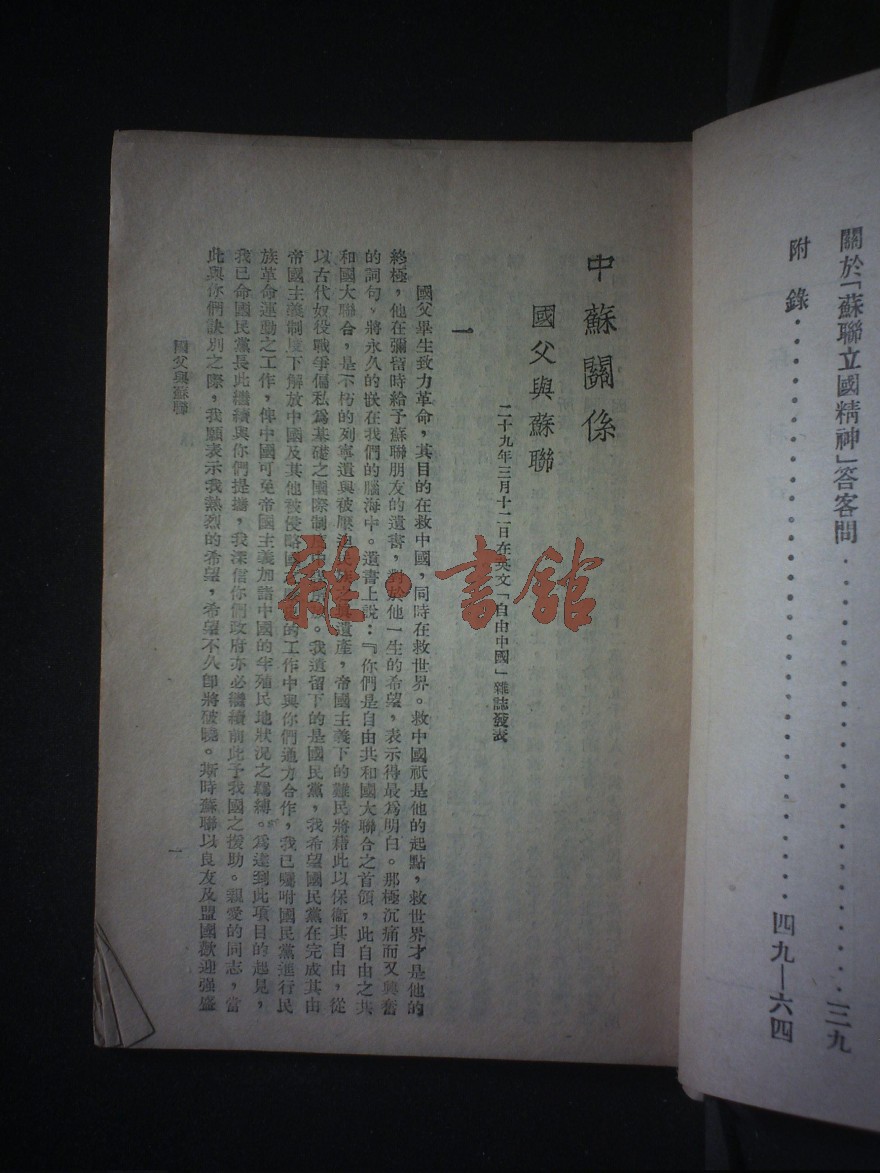 關於「蘇聯立國精神」答客問..................三九
附錄..................四九—六四
中蘇關係
國父與蘇聯
二十九年三月十二日在英文「自由中國」雜誌發表
一
國父畢生致力革命，其目的在救中國，同時在救世界。救中國祇是他的起點，救世界才是他的
終極，他在彌留時給予蘇聯朋友的遺書，對於他一生的希望，表示得最為明白。那極沉痛而又興奮
的詞句，將永久的嵌在我們的腦海中。遺書上說：『你們是自由共和國大聯合之首領，此自由之共
和國大聯合，是不朽的列寧遺與被壓迫民族之真遺產，帝國主義下的難民將藉此以保衛其自由，從
以古代奴役戰爭偏私為基礎之國際制度中。我遺留下的是國民黨，我希望國民黨在完成其由
帝國主義制度下解放中國及其他被侵略國的工作中與你們通力合作，我已囑咐國民黨進行民
族革命運動之工作，俾中國可免帝國主義加諸中國的半殖民地狀況之羈縛。為達到此項目的起見，
我已命國民黨長此繼續與你們提攜，我深信你們政府亦必繼續前此予我國之援助。親愛的同志，當
此與你們訣別之際，我願表示我熱烈的希望，希望不久即將破曉。斯時蘇聯以良友及盟國歡迎强盛
國父與蘇聯
一
雜·書館